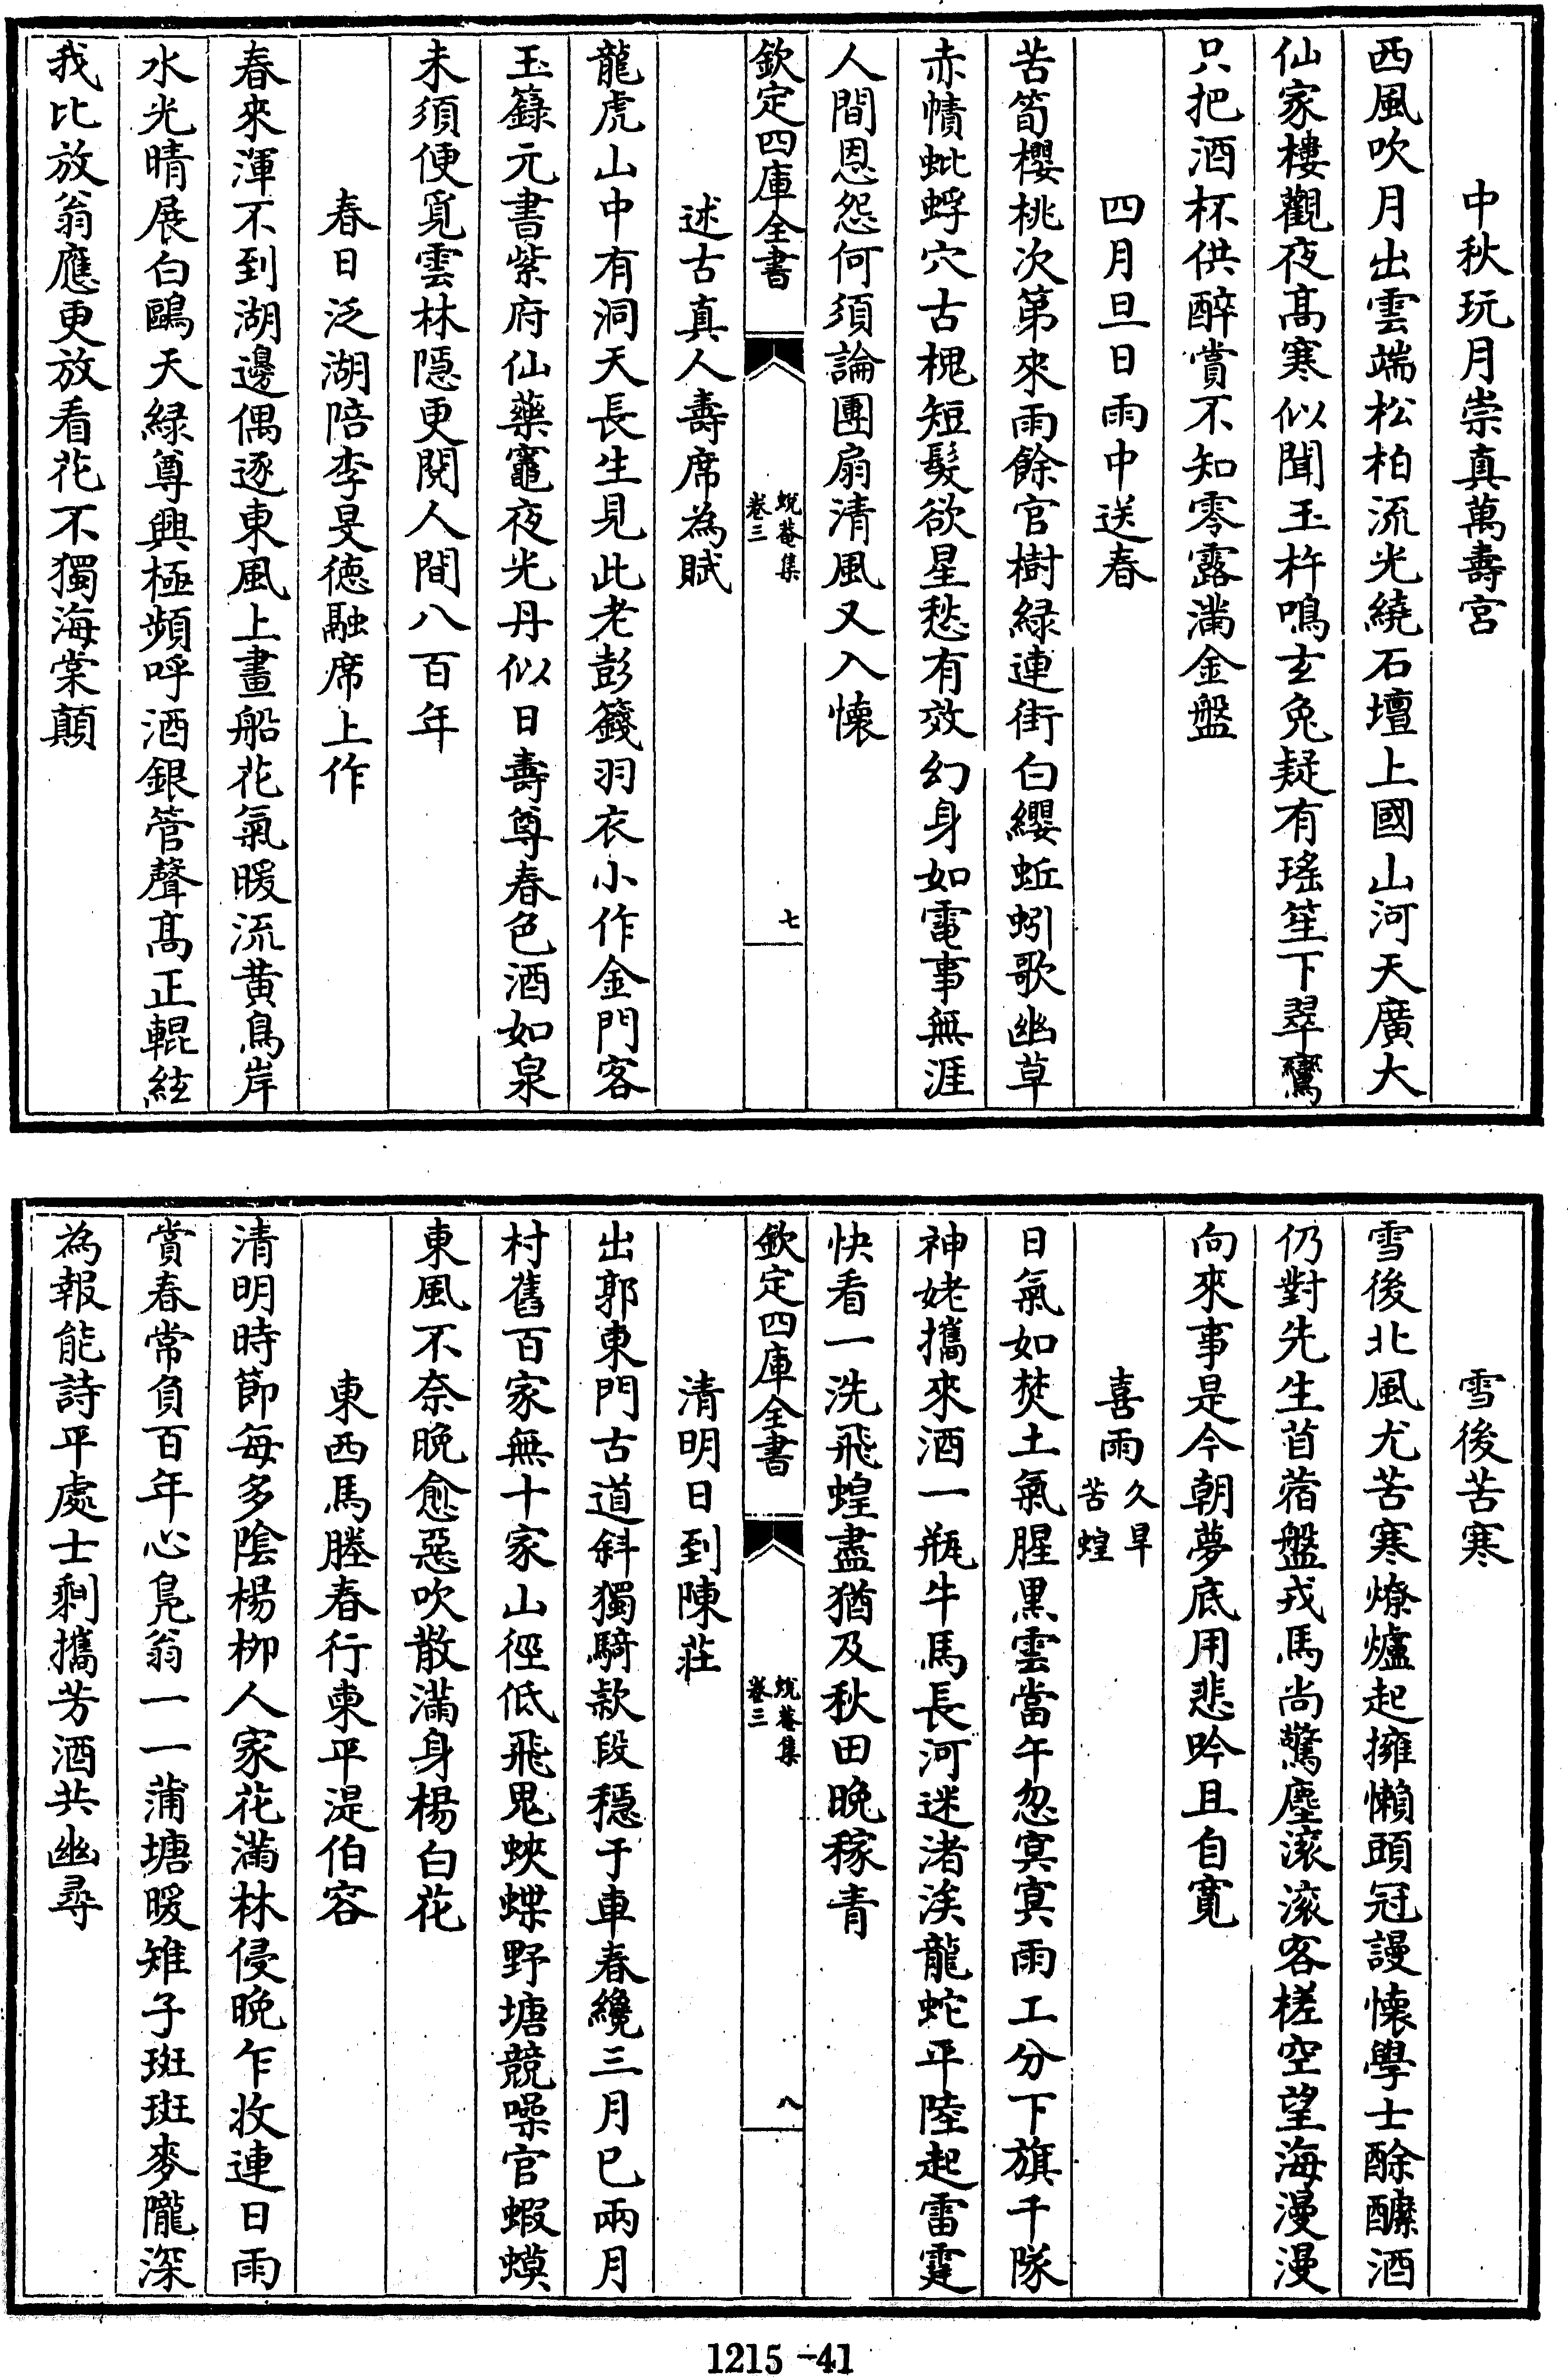 中秋玩月崇真萬壽宮
西風吹月出雲端松柏流光繞石壇上國山河天廣大
仙家樓觀夜髙寒似聞玉杵鳴玄兔疑有瑤笙下翠鸞
只把酒杯供醉賞不知零露滿金盤
四月旦日雨中送春
苦筍櫻桃次第來雨餘官樹緑連街白纓蚯蚓歌幽草
赤幘蚍蜉穴古槐短髮欲星愁有效幻身如電事無涯
人間恩怨何須論團扇清風又入懐
欽定四庫全書
蛻菴集
卷三
七
述古真人壽席為賦
龍虎山中有洞天長生見此老彭籛羽衣小作金門客
玉籙元書紫府仙藥竈夜光丹似日壽尊春色酒如泉
未須便覓雲林隱更閱人間八百年
春日泛湖陪李旻徳融席上作
春來渾不到湖邊偶逐東風上畫船花氣暖流黄鳥岸
水光晴展白鷗天緑尊興極頻呼酒銀管聲髙正輥絃
我比放翁應更放看花不獨海棠顛
雪後苦寒
雪後北風尤苦寒燎爐起擁懶頭冠謾懐學士酴醿酒
仍對先生苜蓿盤戎馬尚驚塵滚滚客槎空望海漫漫
向來事是今朝夢底用悲吟且自寛
喜雨
久旱
苦蝗
日氣如焚土氣腥黒雲當午忽㝠㝠雨工分下旗千隊
神姥攜來酒一瓶牛馬長河迷渚涘龍蛇平陸起雷霆
快看一洗飛蝗盡猶及秋田晚稼青
欽定四庫全書
蛻菴集
卷三
八
清明日到陳莊
出郭東門古道斜獨騎款段穏于車春纔三月已兩月
村舊百家無十家山徑低飛鬼蛺蝶野塘競噪官蝦蟆
東風不奈晩愈惡吹散滿身楊白花
東西馬塍春行柬平湜伯容
清明時節每多陰楊柳人家花滿林侵晩乍收連日雨
賞春常負百年心鳧翁一一蒲塘暖雉子斑斑麥隴深
為報能詩平處士剰攜芳酒共幽尋
1215-41